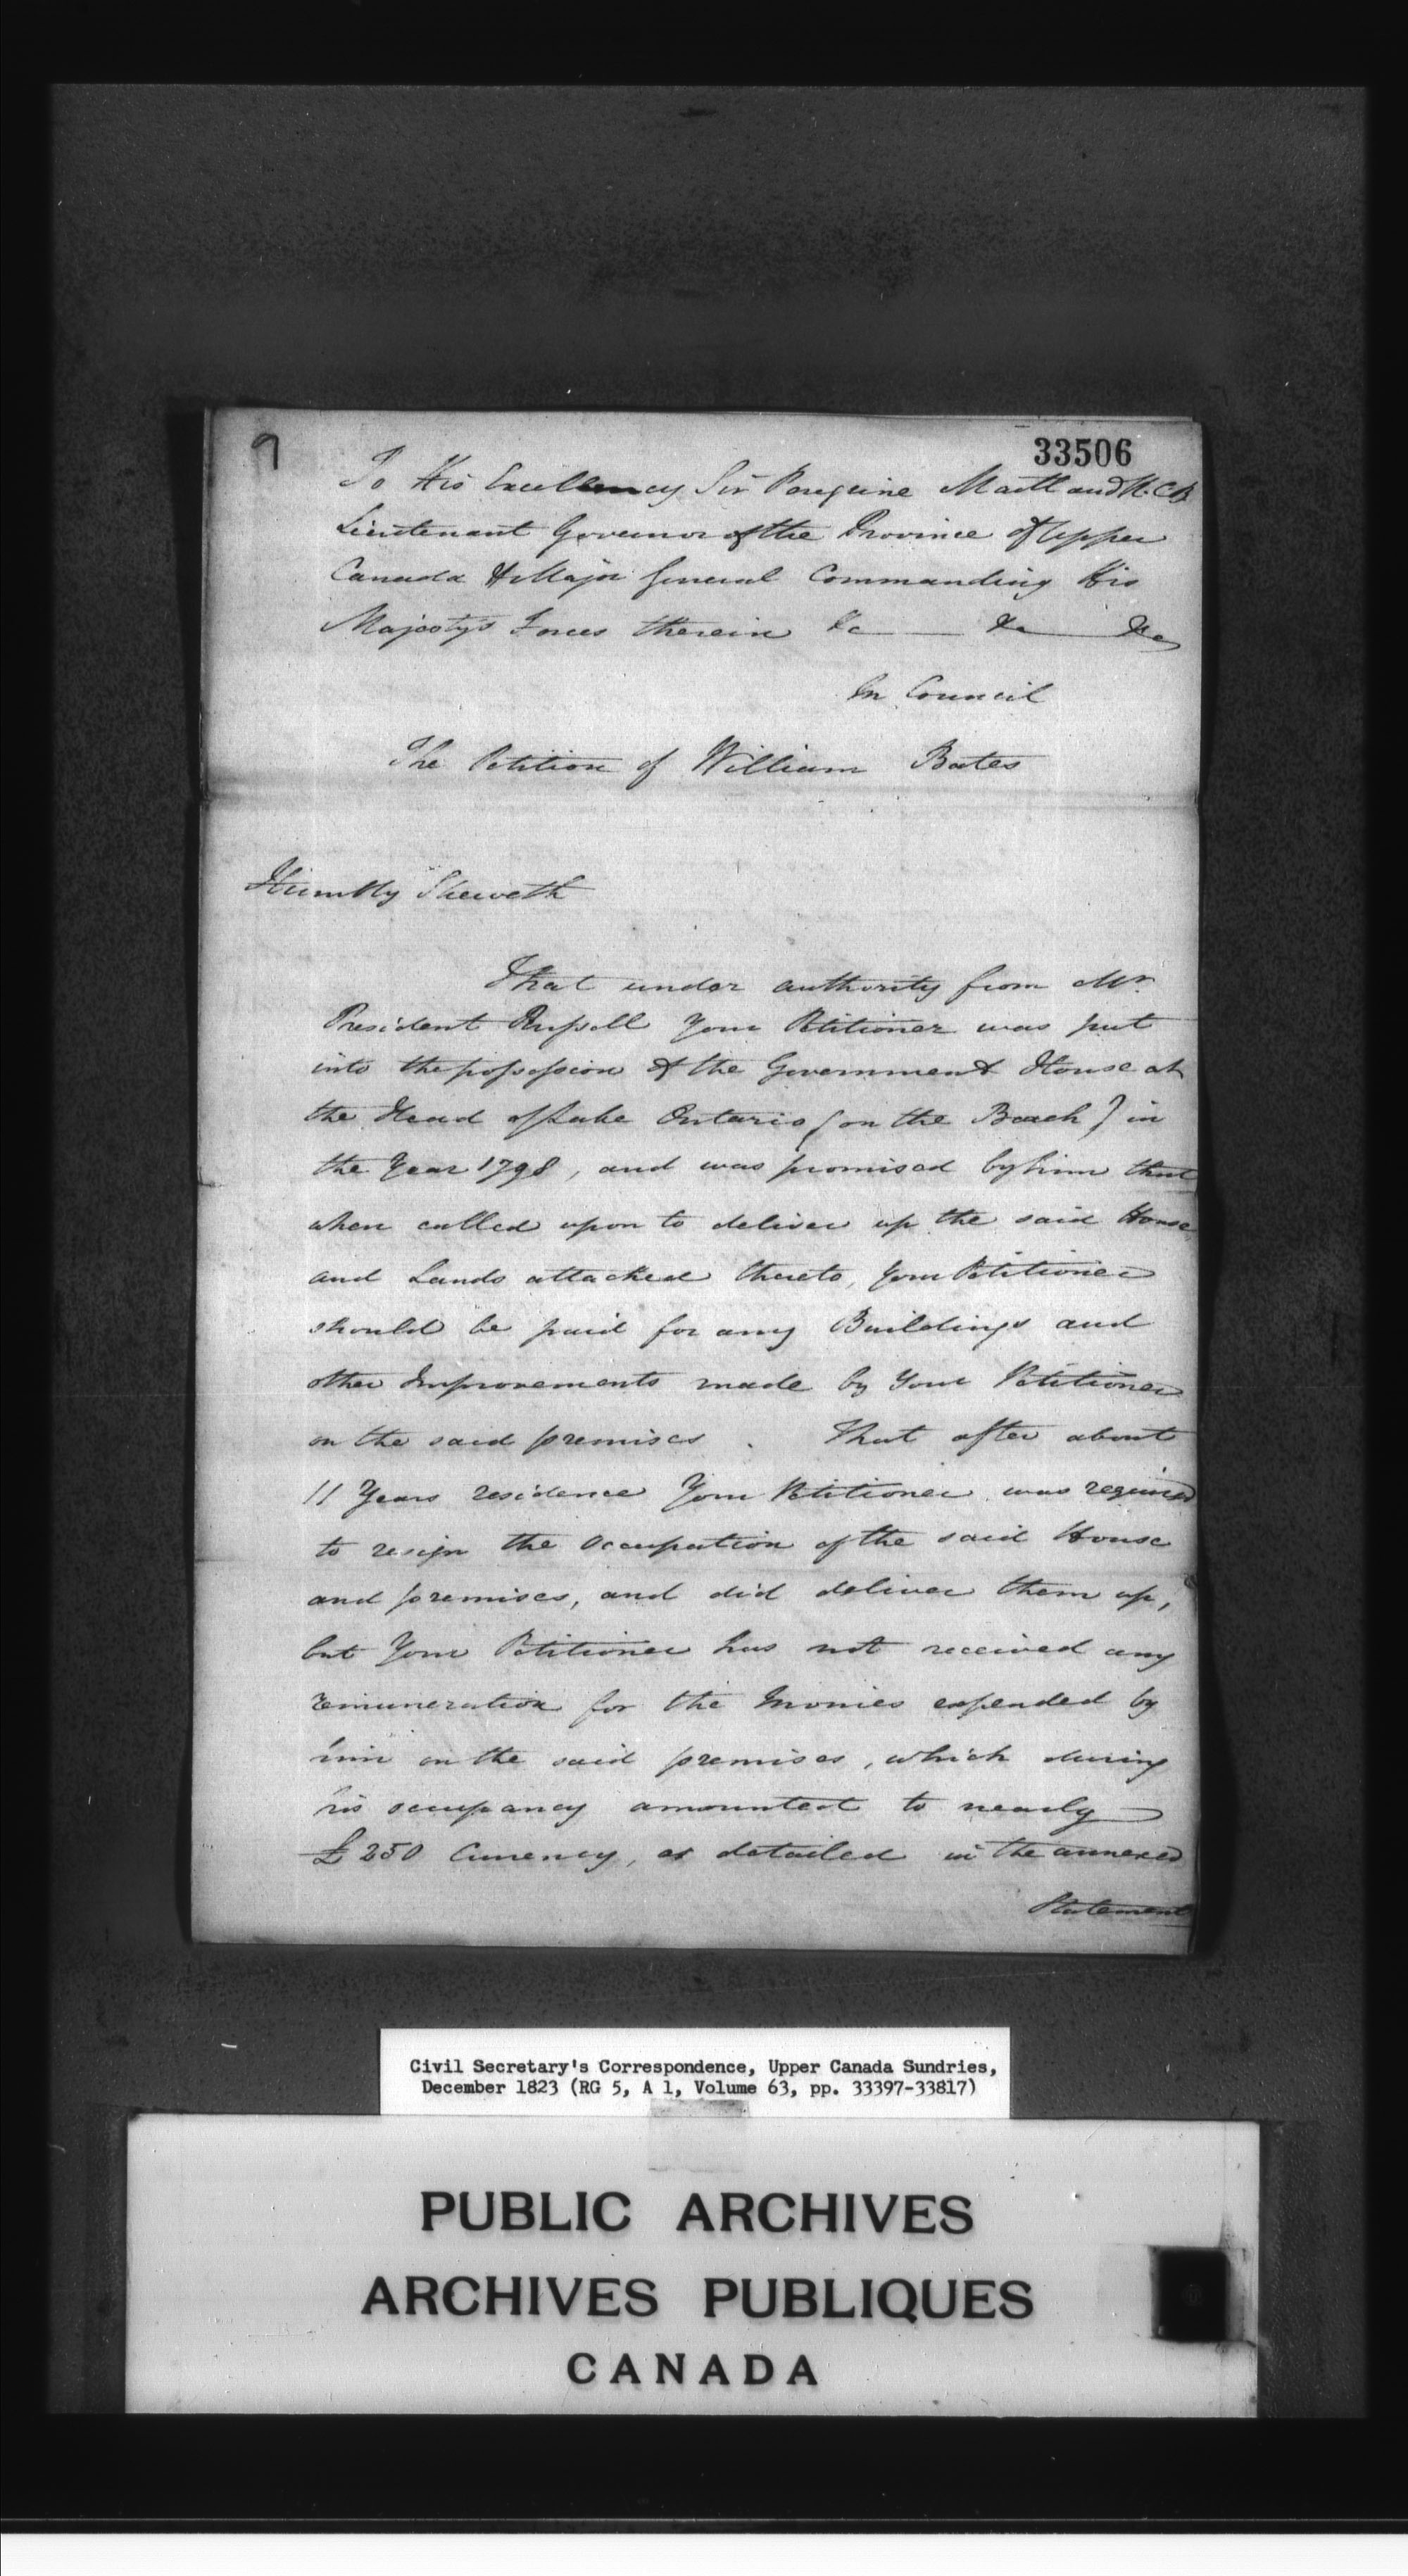 9
33506
To His Excellency Sir Peregrine Maitland K.C.B
Lieutenant Governor of the Province of Upper
Canada & Major General Commanding His
Majestys Forces therein &c &c &c
In Council
The Petition of William Bates
Humbly Sheweth
That under authority from Mr.
President Russell Your Petitioner was put
into the possession of the Government House at
the Head of Lake Ontario (on the Beach) in
the Year 1798, and was promised by him that
when called upon to deliver up the said House
and Lands attached thereto, your Petitioner
should be paid for any Buildings and
other Improvements made by Your Petitioner
on the said premises. That after about
11 Years residence Your Petitioner was required
to resign the Occupation of the said House
and premises, and did deliver them up,
but Your Petitioner has not received any
remuneration for the monies expended by
him on the said premises, which during
his occupancy amounted to nearly
£250 Currency, as detailed in the annexed
Statement
Civil Secretary's Correspondence, Upper Canada Sundries,
December 1823 (RG 5, A 1, Volume 63, pp. 33397-33817)
PUBLIC ARCHIVES
ARCHIVES PUBLIQUES
CANADA